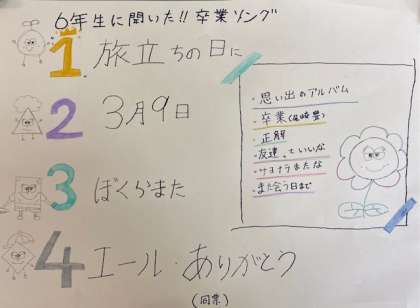 6年生に聞いた!!卒業ソング
1 旅立ちの日に
2 3月9日
3 ぼくらまた
4 エール・ありがとう
(同票)
・思い出のアルバム
・卒業(尾崎豊)
・正解
・友達っていいな
・サヨナラまたな
・また会う日まで